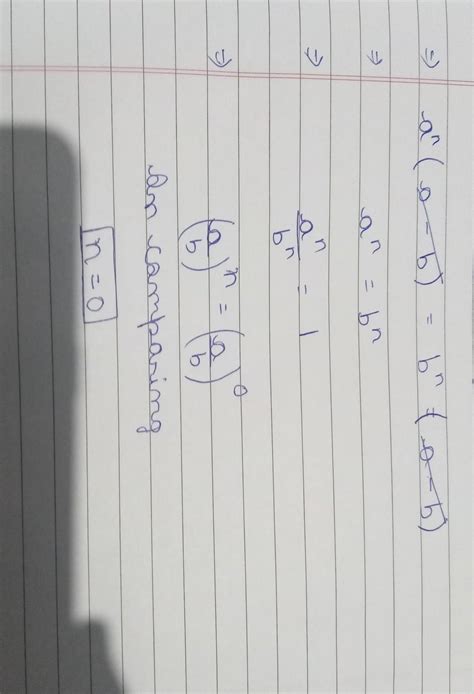 ⇒ aⁿ(a-b) = bⁿ = (a-b)
⇒ aⁿ = bⁿ
⇒ aⁿ/bⁿ = 1
⇒ (a/b)ⁿ = (a/b)⁰
On comparing
n=0